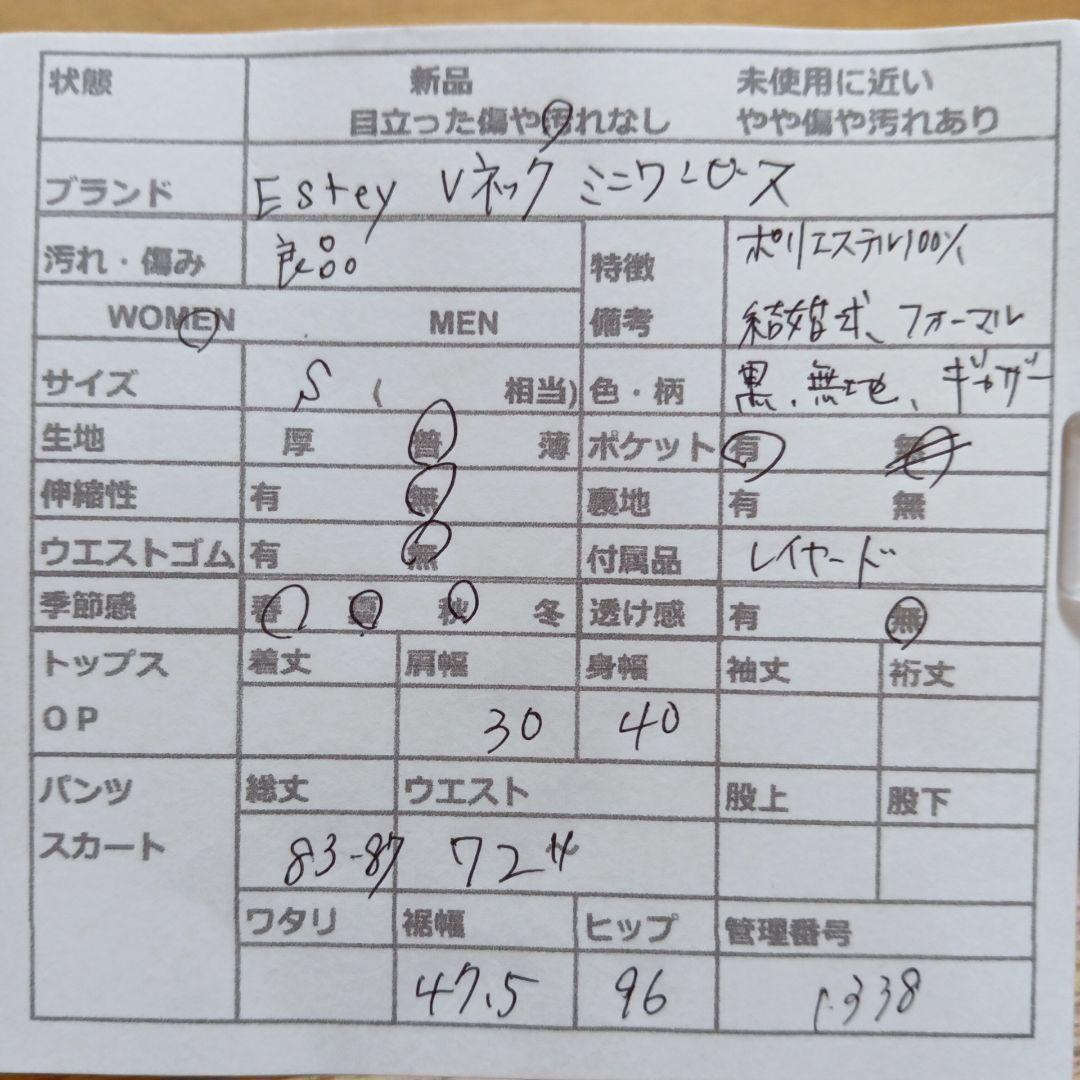 状態 新品 未使用に近い
目立った傷や汚れなし やや傷や汚れあり
ブランド Estey Vネック ミニワンピース
汚れ・傷み 良品 特徴 ポリエステル100%
WOMEN MEN 備考 結婚式、フォーマル
サイズ S ( 相当) 色・柄 黒、無地、ギャザー
生地 厚 普 薄 ポケット 有 無
伸縮性 有 無 裏地 有 無
ウエストゴム 有 無 付属品 レイヤード
季節感 春 夏 秋 冬 透け感 有 無
トップス 着丈 肩幅 身幅 袖丈 裄丈
OP 30 40
パンツ 総丈 ウエスト 股上 股下
スカート 83-87 72
ワタリ 裾幅 ヒップ 管理番号
47.5 96 338